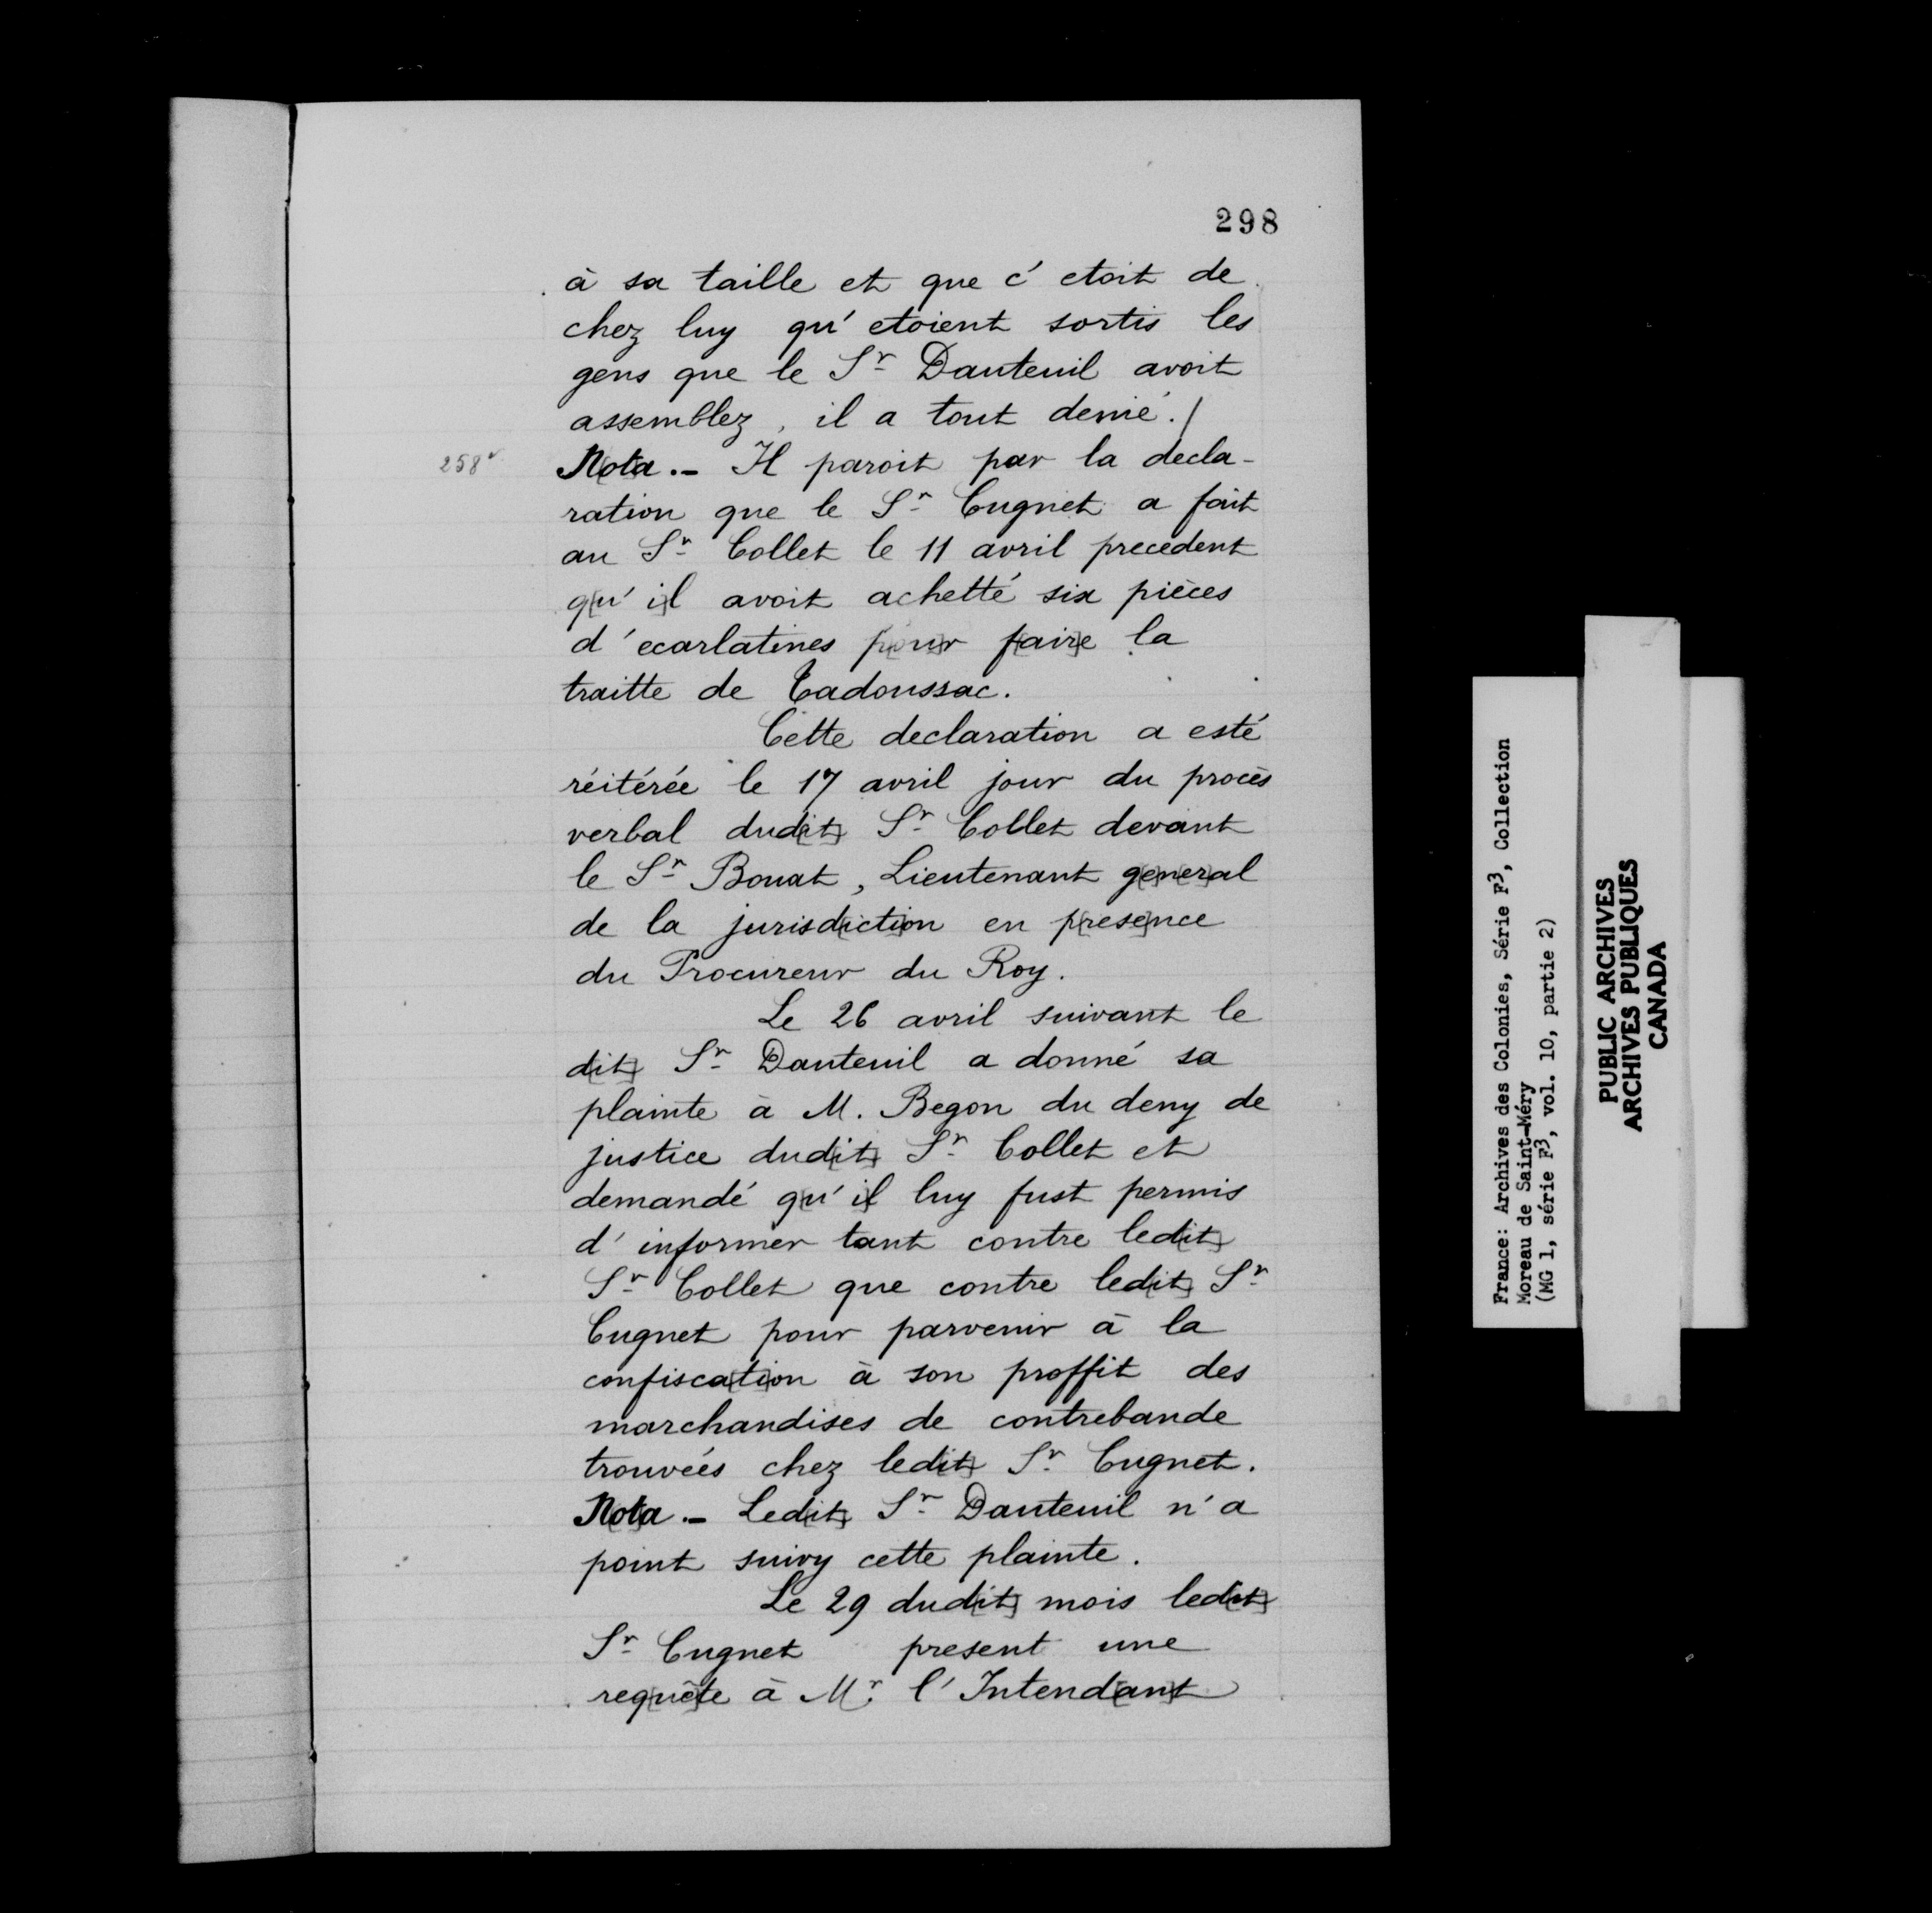 298
à sa taille et que c' etoit de
chez luy qu' etoient sortis les
gens que le Sr Dauteuil avoit
assemblez, il a tout denié./
258v
N[ot]a.- Il paroit par la decla-
ration que le Sr Cugnet a fait
au Sr Collet le 11 avril precedent
q[u' i]l avoit achetté six pièces
d' ecarlatines p[ou]r f[air]e la
traitte de Tadoussac.
Cette declaration a esté
réitérée le 17 avril jour du procès
verbal dud[it] Sr Collet devant
le Sr Bouat, Lieutenant g[e]n[er]al
de la jurisd[icti]on en p[rese]nce
du Procureur du Roy.
Le 26 avril suivant le
d[it] Sr Dauteuil a donné sa
plainte à M. Begon du deny de
justice dud[it] Sr Collet et
demandé q[u' i]l luy fust permis
d' informer tant contre led[it]
Sr Collet que contre led[it] Sr
Cugnet pour parvenir à la
confisca[ti]on à son proffit des
marchandises de contrebande
trouvées chez led[it] Sr Cugnet.
N[ot]a.- Led[it] Sr Dauteuil n' a
point suivy cette plainte.
Le 29 dud[it] mois led[it]
Sr Cugnet present une
req[uê]te à Mr l' Intend[an]t
France: Archives des Colonies, Série F3, Collection
Moreau de Saint-Méry
(MG 1, série F3, vol. 10, partie 2)
PUBLIC ARCHIVES
ARCHIVES PUBLIQUES
CANADA